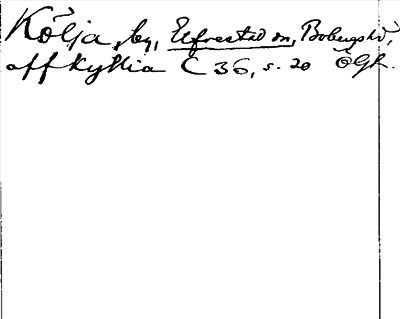 Kölja, by, Elfvestad sn, Bobergs hd,
aff kyllia C 36, s. 20 Ögh.